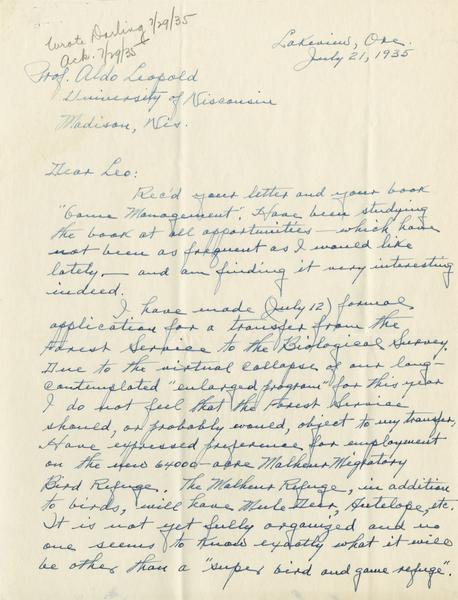 Wrote Darling 7/29/35
Ack. 7/29/35
Lakeview, Ore.
July 21, 1935
Prof. Aldo Leopold
University of Wisconsin
Madison, Wis.
Dear Leo:
Rec'd your letter and your book
"Game Management". Have been studying
the book at all opportunities - which have
not been as frequent as I would like
lately, - and am finding it very interesting
indeed.
I have made July 12) formal
application for a transfer from the
Forest Service to the Biological Survey.
Due to the virtual collapse of our long-
contemplated "enlarged program" for this year
I do not feel that the Forest Service
should, or probably would, object to my transfer.
Have expressed preference for employment
on the new 64000-acre Malheur Migratory
Bird Refuge. The Malheur Refuge, in addition
to birds, will have Mule Deer, Antelope, etc.
It is not yet fully organized and no
one seems to know exactly what it will
be other than a "super bird and game refuge".